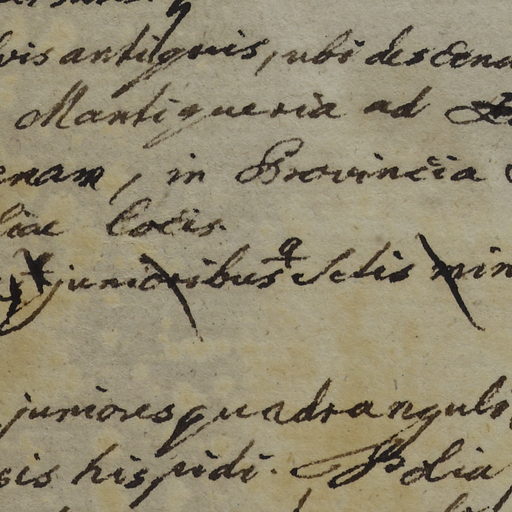 vis antiquis, ubi descend
Mantiqueria ad
enam, in Provincia
liae locis
junioribus Setis min
juniores quadrangulo
sis hispidi. Folia